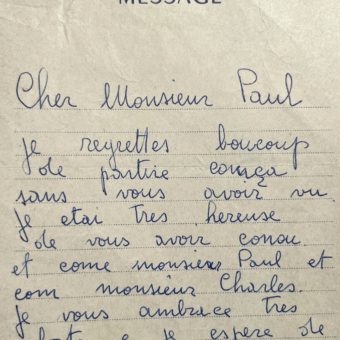 MESSAGE
Cher Monsieur Paul
je regrettes boucoup
de partire comça
sans vous avoir vu.
Je etai tres hereuse
de vous avoir conou
et come monsieur Paul et
com monsieur Charles.
Je vous ambrace tres
e je espere de